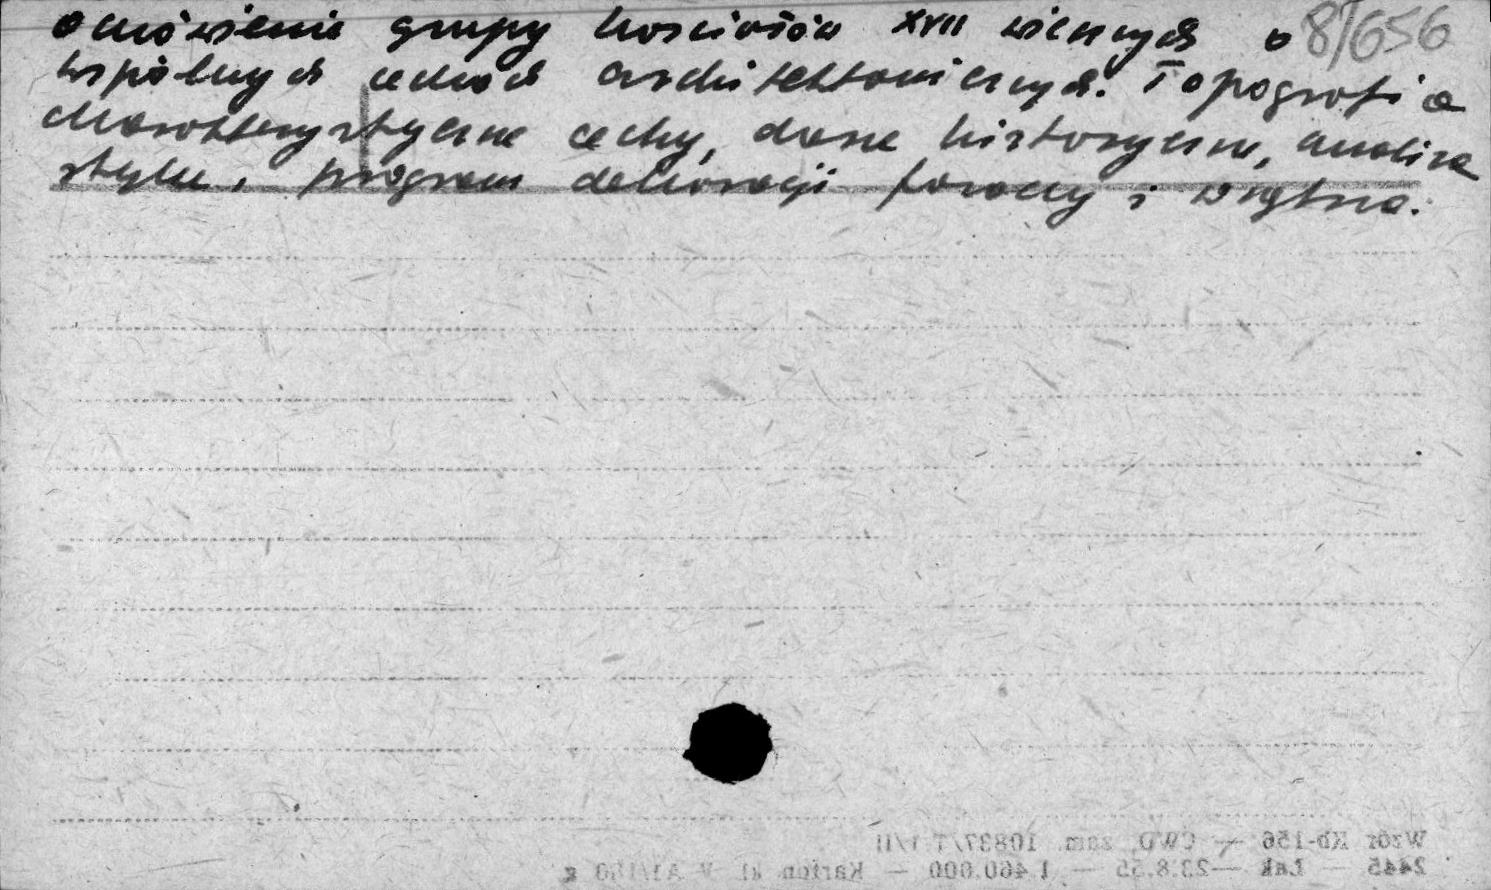 omówienie grupy kościołów XVII wiecznych o 8/656
wspólnych cechach architektonicznych. Topografia
charakterystyczne cechy, dane historyczne, analiza
stylu, program dekoracji fasady i wnętrza.
Wzór Kb-156 — CWD, zam. 10837/T/I/II
2445 — Łak — 23.8.55 — 1.460.000 — Karton kl. V A1/150 g